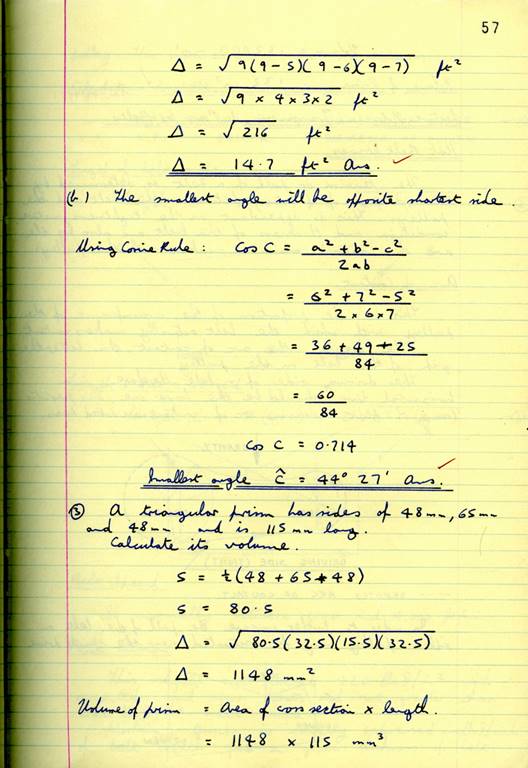 57
Δ = √9(9-5)(9-6)(9-7) ft²
Δ = √9 × 4 × 3 × 2 ft²
Δ = √216 ft²
Δ = 14.7 ft² Ans. ✓
(b) The smallest angle will be opposite shortest side.
Using Cosine Rule: Cos C = a² + b² - c² / 2ab
= 6² + 7² - 5² / 2 × 6 × 7
= 36 + 49 - 25 / 84
= 60 / 84
Cos C = 0.714
Smallest angle Ĉ = 44° 27' Ans. ✓
③ A triangular prism has sides of 48mm, 65mm
and 48mm and is 115 mm long.
Calculate its volume.
S = ½(48 + 65 + 48)
S = 80.5
Δ = √80.5(32.5)(15.5)(32.5)
Δ = 1148 mm²
Volume of prism = Area of cross section × length.
= 1148 × 115 mm³